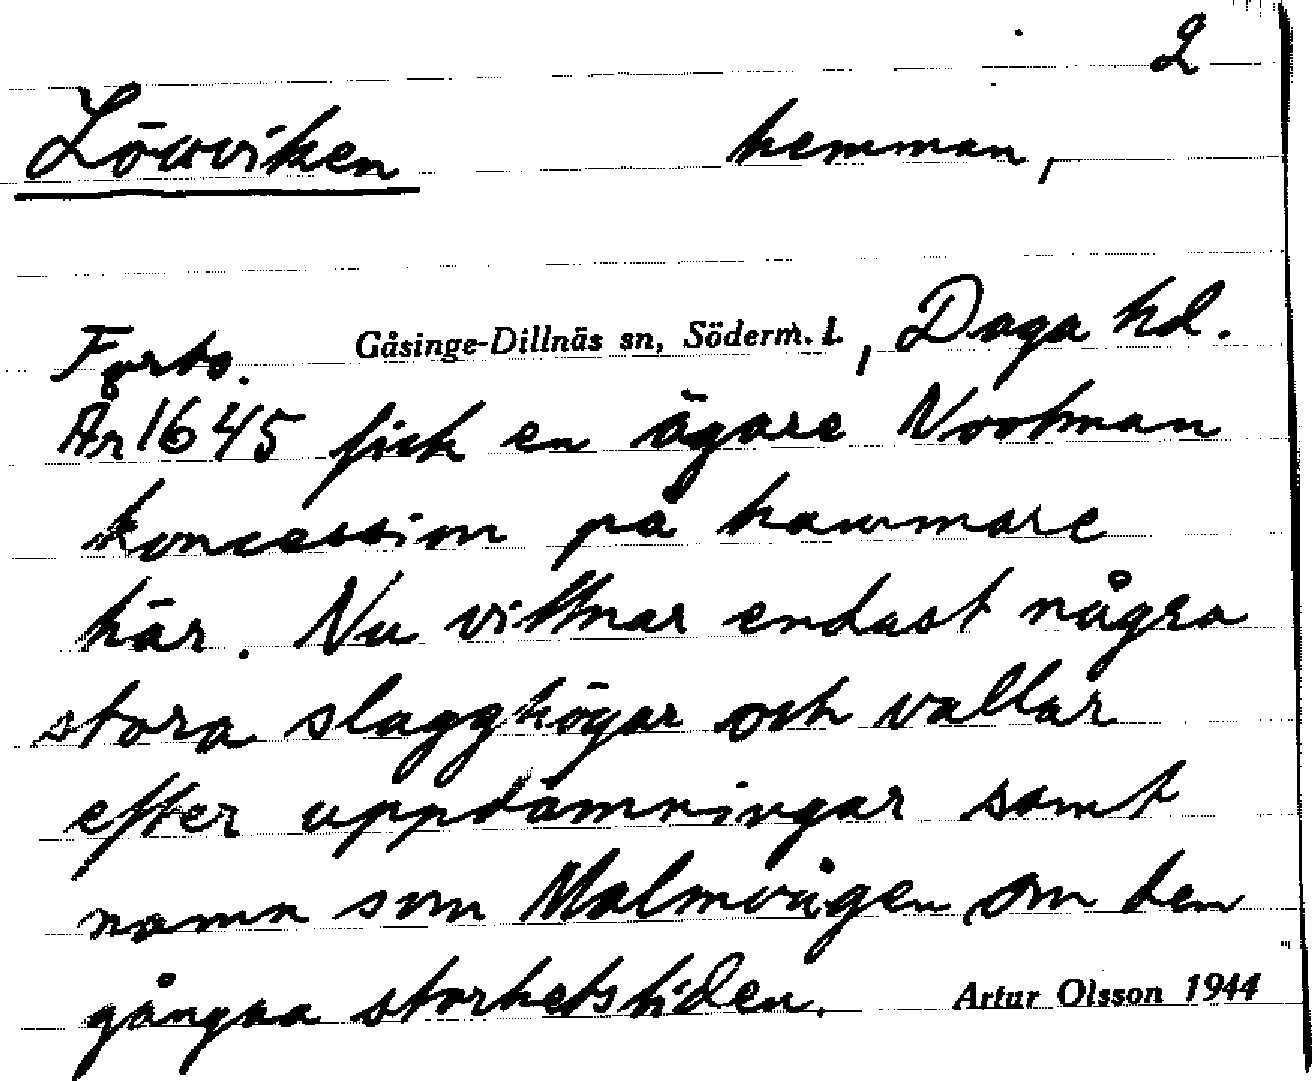 2
Lövviken hemman,
Forts. Gåsinge-Dillnäs sn, Söderm. l., Daga hd.
År 1645 fick en ägare Nootman
koncession på hammare
här. Nu vittnar endast några
stora slagghögar och vallar
efter uppdämningar samt
namn som Malmvägen om den
gångna storhetstiden. Artur Olsson 1944